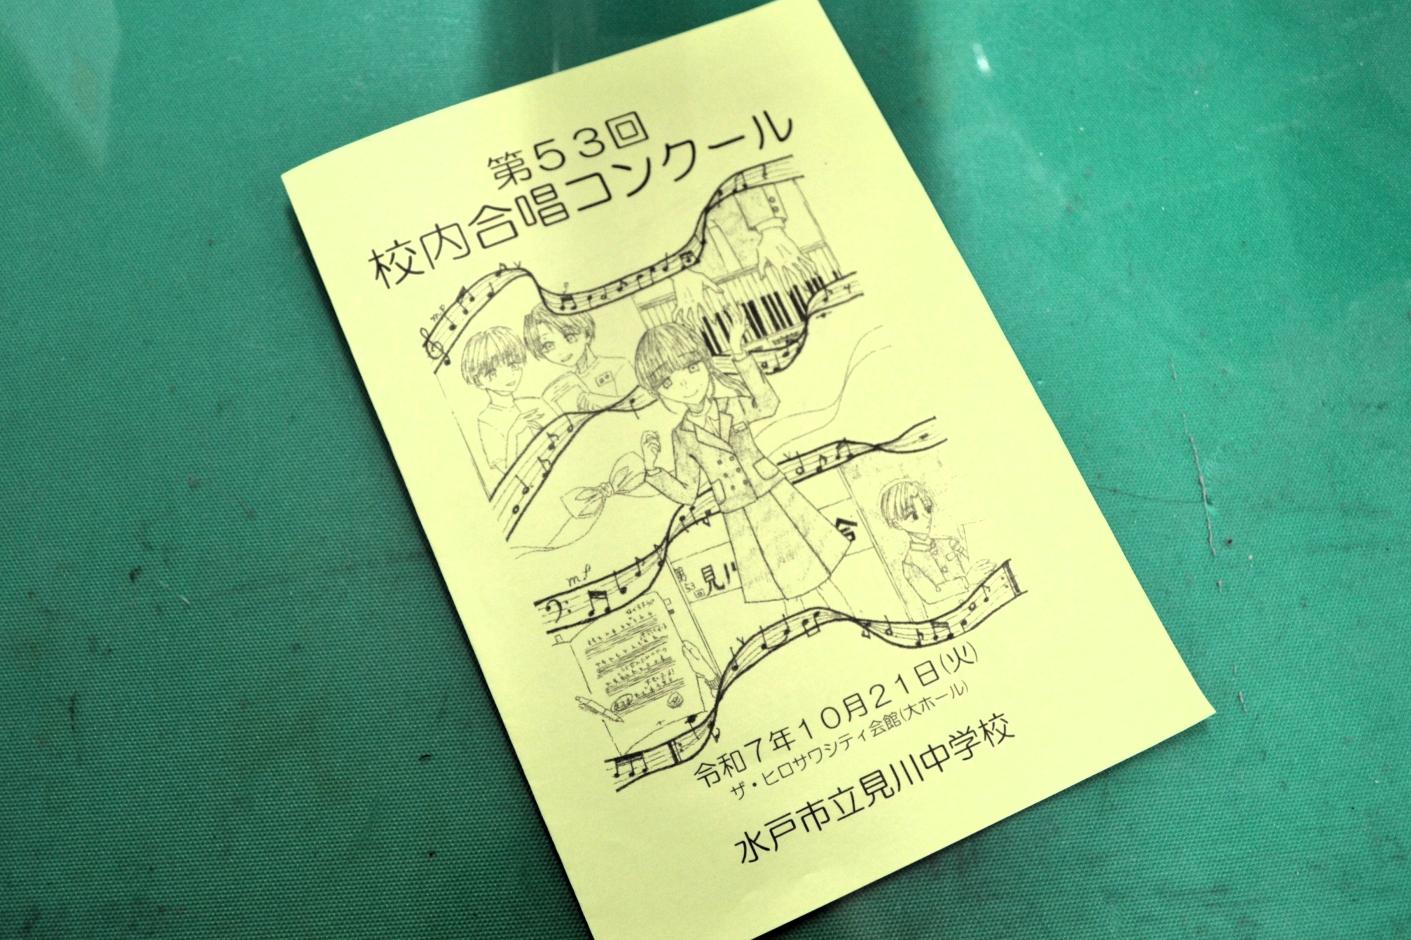 第５３回
校内合唱コンクール
mp
mf
第53回
見川
合
令和７年１０月２１日(火)
ザ・ヒロサワシティ会館(大ホール)
水戸市立見川中学校